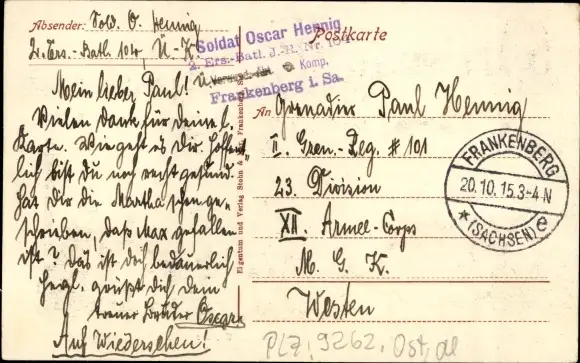 Absender: Sold. O. Hennig
2. Ers.-Batl. 104, Ü.-K.
Soldat Oscar Hennig
2. Ers.-Batl. J.-R. Nr. 104
Komp.
Frankenberg i. Sa.
Postkarte
Mein lieber Paul!
Vielen Dank für Deine l.
Karte. Wie geht es Dir, hoffent-
lich bist Du noch recht gesund.
Hat Dir die Martha schon ge-
schrieben, daß Max gefallen
ist? Das ist doch bedauerlich
Herzl. grüßt Dich Dein
treuer Bruder Oscar.
Auf Wiedersehen!
Eigentum und Verlag Stohn & Frankenberg
An Grenadier Paul Hennig
II. Gren.-Reg. # 101
23. Division
XII. Armee-Corps
M. G. K.
Westen
FRANKENBERG
20.10.15.3-4 N
* (SACHSEN) e
PLZ: 9262, Ost